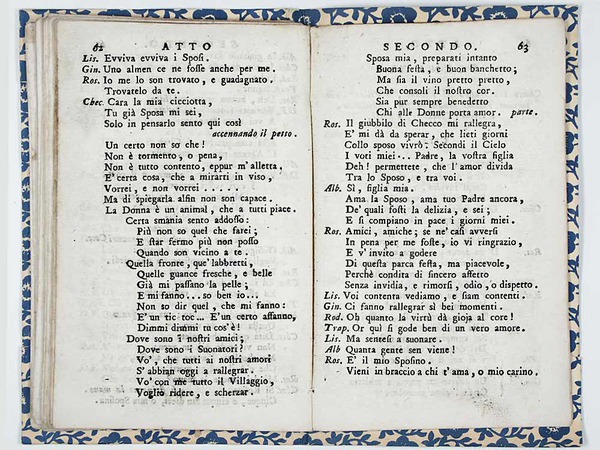 62 ATTO
Lis. Evviva evviva i Sposi.
Gin. Uno almen ce ne fosse anche per me.
Ros. Io me lo son trovato, e guadagnato.
Trovatelo da te.
Chec. Cara la mia cicciotta,
Tu già Sposa mi sei,
Solo in pensarlo sento quì così
accennando il petto.
Un certo non so che!
Non è tormento, o pena,
Non è tutto contento, eppur m'alletta.
E' certa cosa, che a mirarti in viso,
Vorrei, e non vorrei . . . . .
Ma di spiegarla alfin non son capace.
La Donna è un animal, che a tutti piace.
Certa smania sento addosso:
Più non so quel che farei;
E star fermo più non posso
Quando son vicino a te.
Quella fronte, que' labbretti,
Quelle guance fresche, e belle
Già mi passano la pelle;
E mi fanno... so ben io...
Non so dir quel, che mi fanno:
E' un tic toc... E' un certo affanno,
Dimmi dimmi tu cos'è!
Dove sono i nostri amici;
Dove sono i Suonatori?
Vo', che tutti ai nostri amori
S'abbian oggi a rallegrar.
Vo' con me tutto il Villaggio,
Voglio ridere, e scherzar.
SECONDO. 63
Sposa mia, preparati intanto
Buona festa, e buon banchetto;
Ma sia il vino pretto pretto,
Che consoli il nostro cor.
Sia pur sempre benedetto
Chi alle Donne porta amor. parte.
Ros. Il giubbilo di Checco mi rallegra,
E' mi dà da sperar, che lieti giorni
Collo sposo vivrò. Secondi il Cielo
I voti miei... Padre, la vostra figlia
Deh! permettete, che l'amor divida
Tra lo Sposo, e tra voi.
Alb. Sì, figlia mia.
Ama la Sposo, ama tuo Padre ancora,
De' quali fosti la delizia, e sei;
E si compiano in pace i giorni miei.
Ros. Amici, amiche; se ne' casi avversi
In pena per me foste, io vi ringrazio,
E v'invito a godere
Di questa parca festa, ma piacevole,
Perchè condita di sincero affetto
Senza invidia, e rimorsi, odio, o dispetto.
Lis. Voi contenta vediamo, e siam contenti.
Gin. Ci fanno rallegrar sì bei momenti.
Rod. Oh quanto la virtù dà gioja al core!
Trap. Or quì si gode ben di un vero amore.
Lis. Ma sentesi a suonare.
Alb Quanta gente sen viene!
Ros. E' il mio Sposino.
Vieni in braccio a chi t'ama, o mio carino.